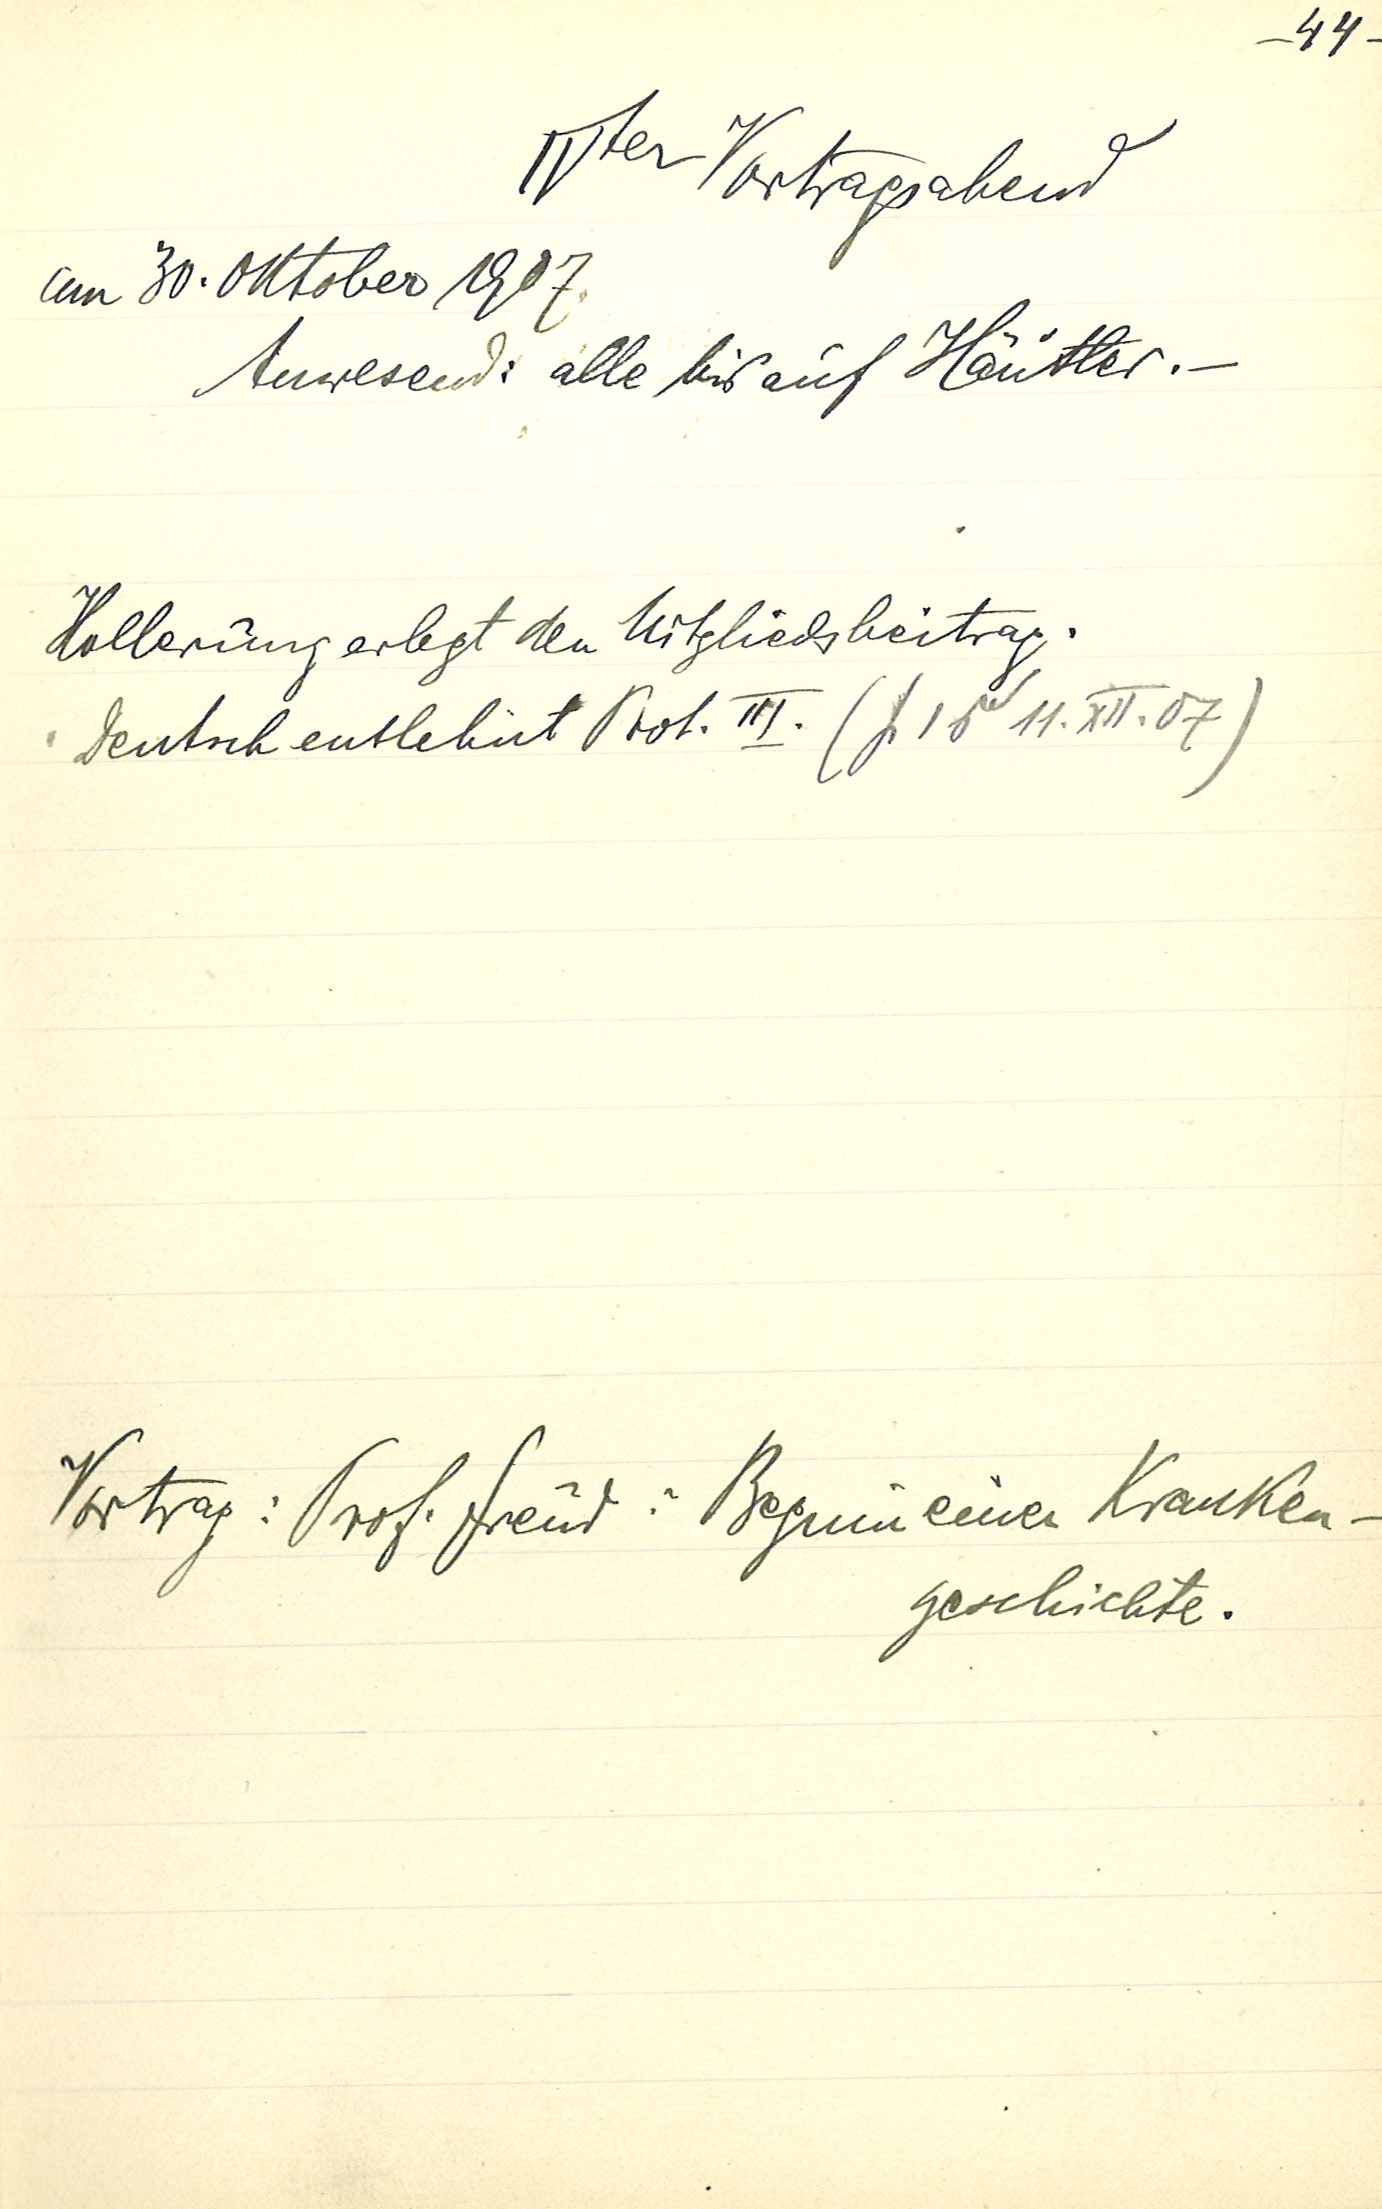 -44-
IVter Vortragsabend
am 30. Oktober 1907.
Anwesend: alle bis auf Häutler.-
Hollerung erlegt den Mitgliedsbeitrag.
Deutsch entlehnt Prot. III. ( 11. XII. 07)
Vortrag: Prof. Freud: Beginn einer Kranken-
geschichte.